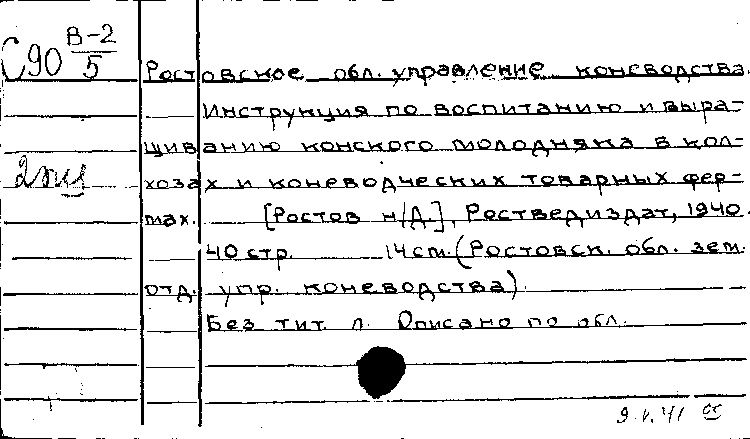 С90 В-2/5
Ростовское обл. управление коневодства.
Инструкция по воспитанию и выра-
щиванию конского молодняка в кол-
хозах и коневодческих товарных фер-
мах. [Ростов н/Д.], Рествед издат, 1940.
40 стр. 14 см. (Ростовск. обл. зем.
отд. упр. коневодства).
Без тит. л. Описано по обл.
9.V.41